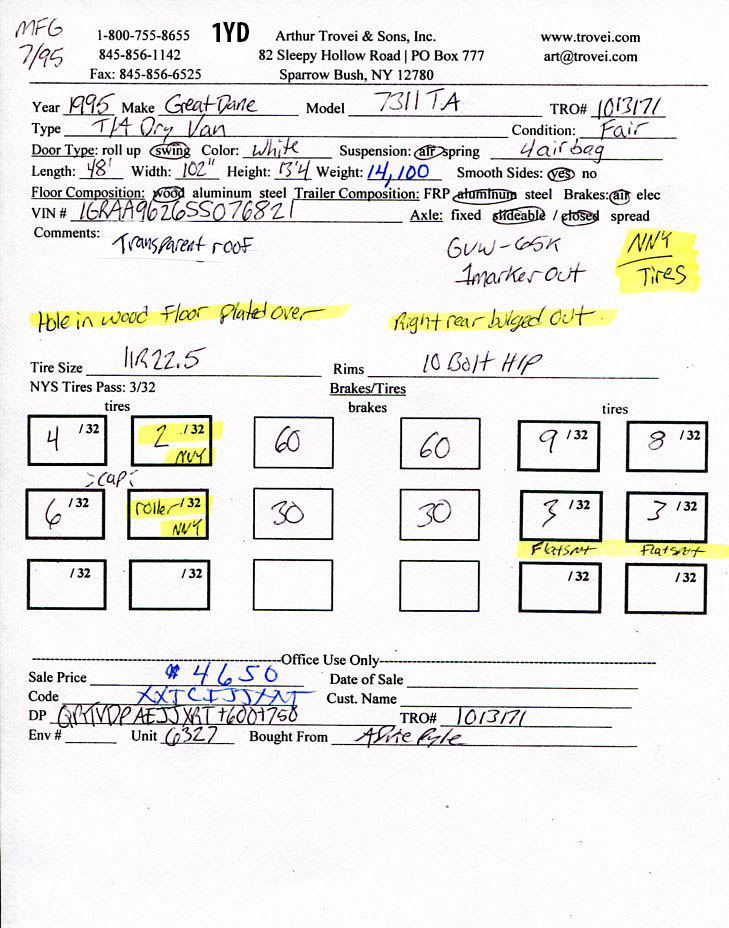 MFG
7/95
1-800-755-8655 1YD Arthur Trovei & Sons, Inc. www.trovei.com
845-856-1142 82 Sleepy Hollow Road | PO Box 777 art@trovei.com
Fax: 845-856-6525 Sparrow Bush, NY 12780
Year 1995 Make Great Dane Model 7311 TA TRO# 1013171
Type T/A Dry Van Condition: Fair
Door Type: roll up swing Color: White Suspension: air spring 4 airbag
Length: 48' Width: 102" Height: 13'4 Weight: 14,100 Smooth Sides: yes no
Floor Composition: wood aluminum steel Trailer Composition: FRP aluminum steel Brakes: air elec
VIN # 1GRAA9626SS076821 Axle: fixed slideable / closed spread
Comments: Transparent roof GVW-65K NNY
1marker out Tires
Hole in wood Floor plated over Right rear bulged out.
Tire Size 11R22.5 Rims 10 Bolt H/P
NYS Tires Pass: 3/32 Brakes/Tires
tires brakes tires
4 /32 2 /32 60 60 9 /32 8 /32
NNY
cap
6 /32 roller /32 30 30 3 /32 3 /32
NNY
Flatspot Flatspot
/32 /32 /32 /32
Office Use Only
Sale Price $ 4650 Date of Sale
Code XXTCIJJXNT Cust. Name
DP QRTVDPAEJJXRT +600+750 TRO# 1013171
Env # Unit 6327 Bought From